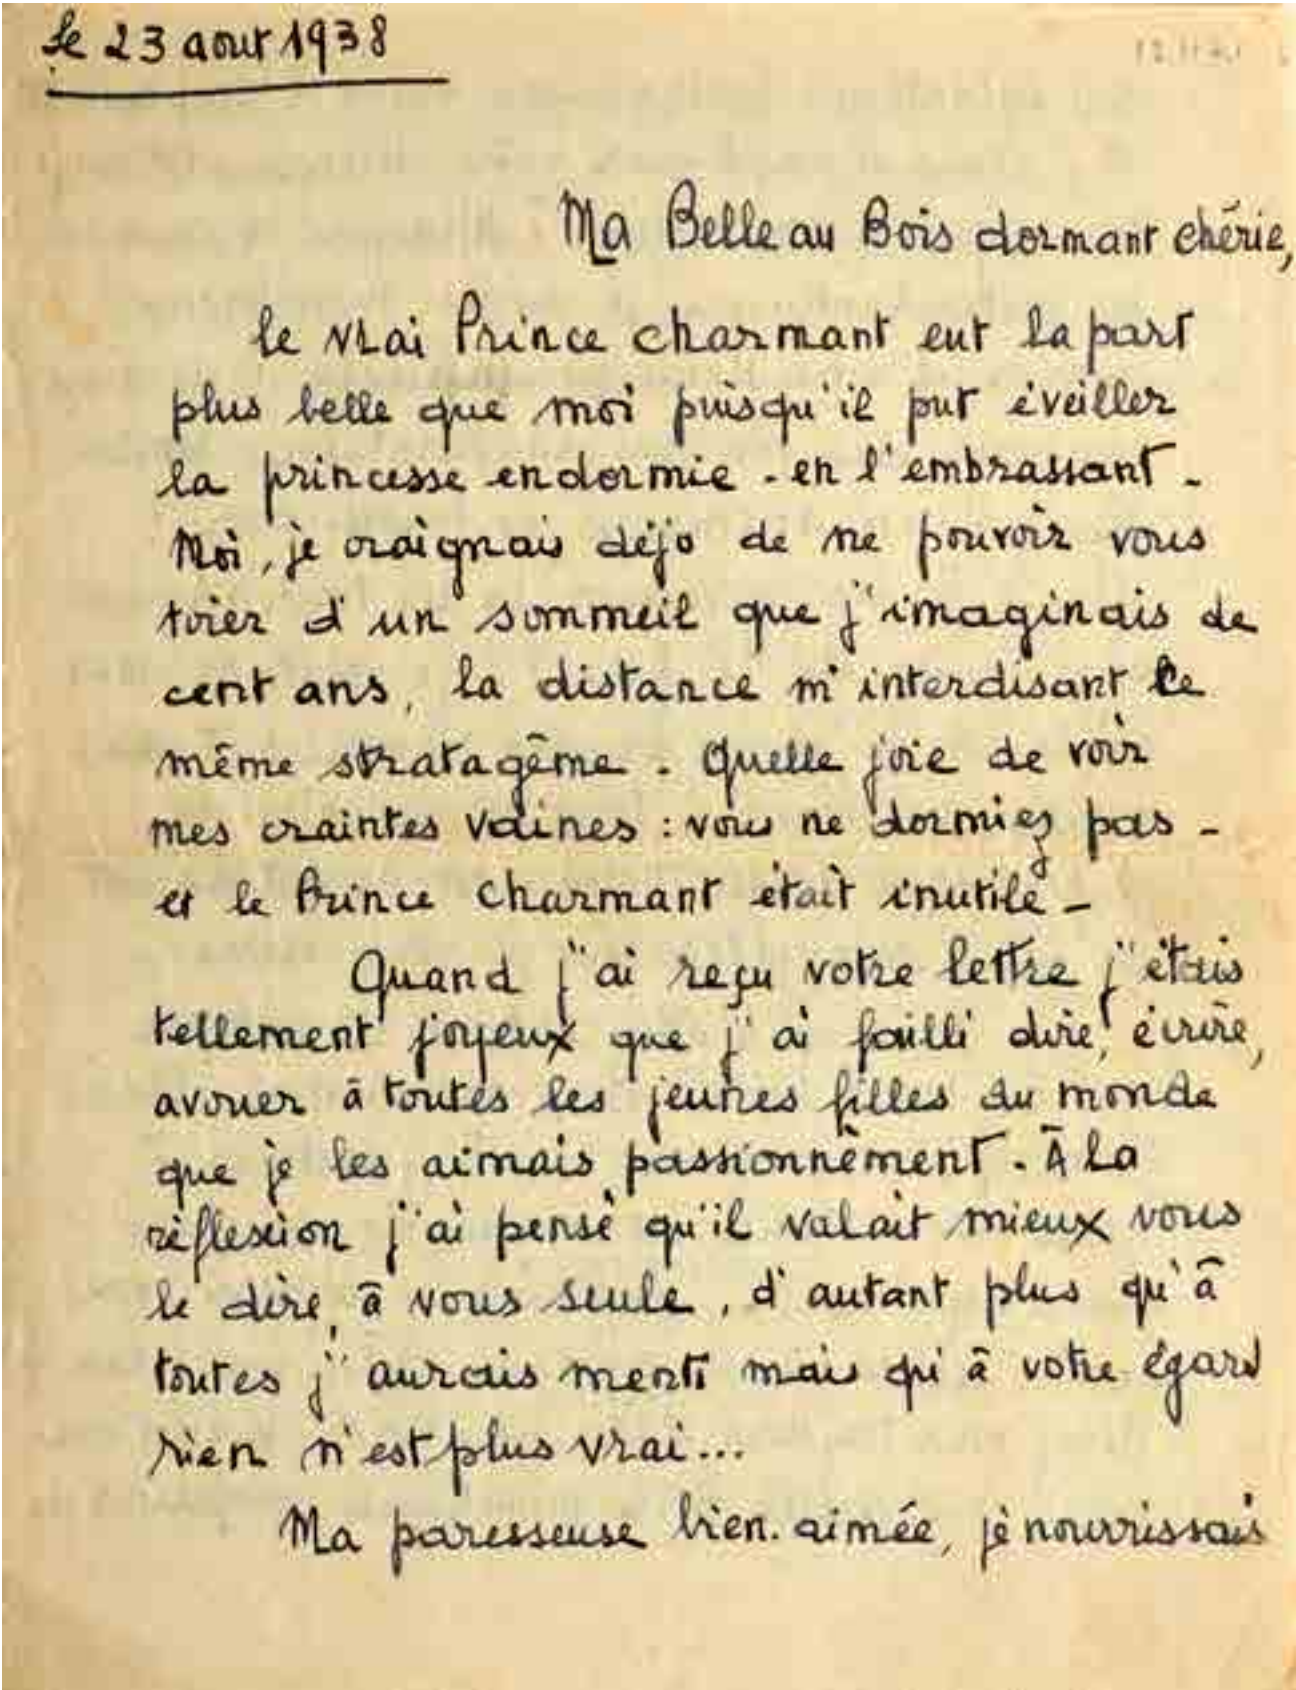 le 23 aout 1938
Ma Belle au Bois dormant chérie,
le vrai Prince charmant eut la part
plus belle que moi puisqu'il put éveiller
la princesse endormie - en l'embrassant -
Moi, je craignais déjà de ne pouvoir vous
tirer d'un sommeil que j'imaginais de
cent ans, la distance m'interdisant le
même stratagême. Quelle joie de voir
mes craintes vaines : vous ne dormiez pas -
et le Prince charmant était inutile -
Quand j'ai reçu votre lettre j'étais
tellement joyeux que j'ai failli dire, écrire,
avouer à toutes les jeunes filles du monde
que je les aimais passionnément. À la
réflexion j'ai pensé qu'il valait mieux vous
le dire, à vous seule, d'autant plus qu'à
toutes j'aurais menti mais qu'à votre égard
rien n'est plus vrai...
Ma paresseuse bien-aimée, je nourrissais